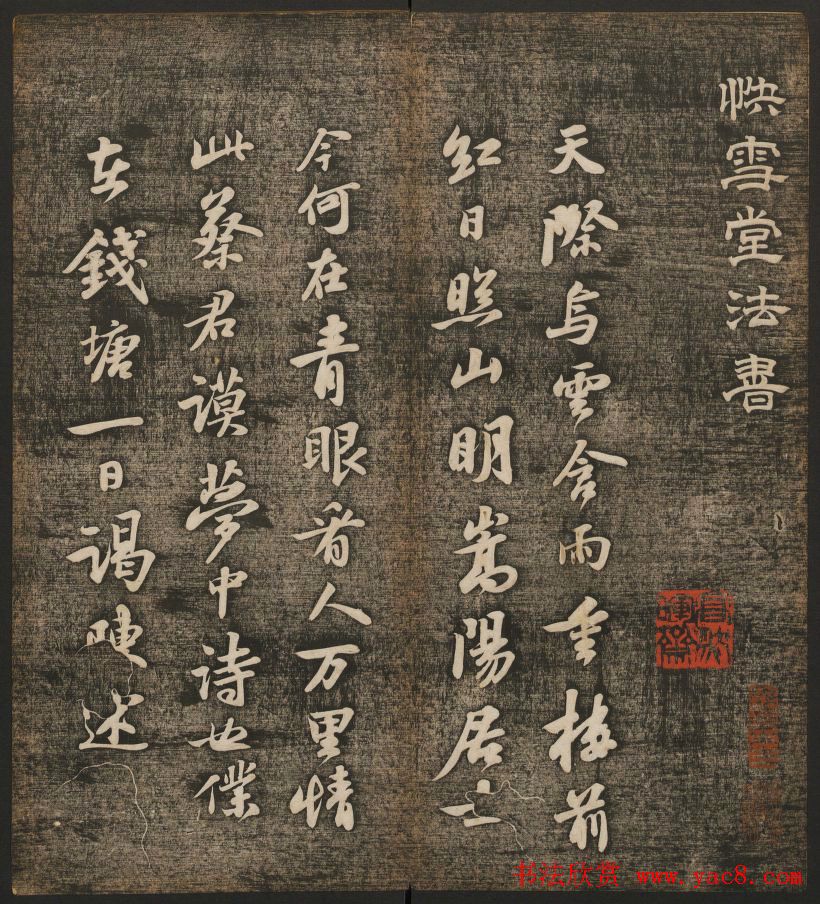 快雪堂法書
天際烏雲含雨重樓前
紅日照山明嵩陽居士
今何在青眼看人万里情
此蔡君謨夢中詩也僕
在錢塘一日謁陳述
书法欣赏 www.yac8.com